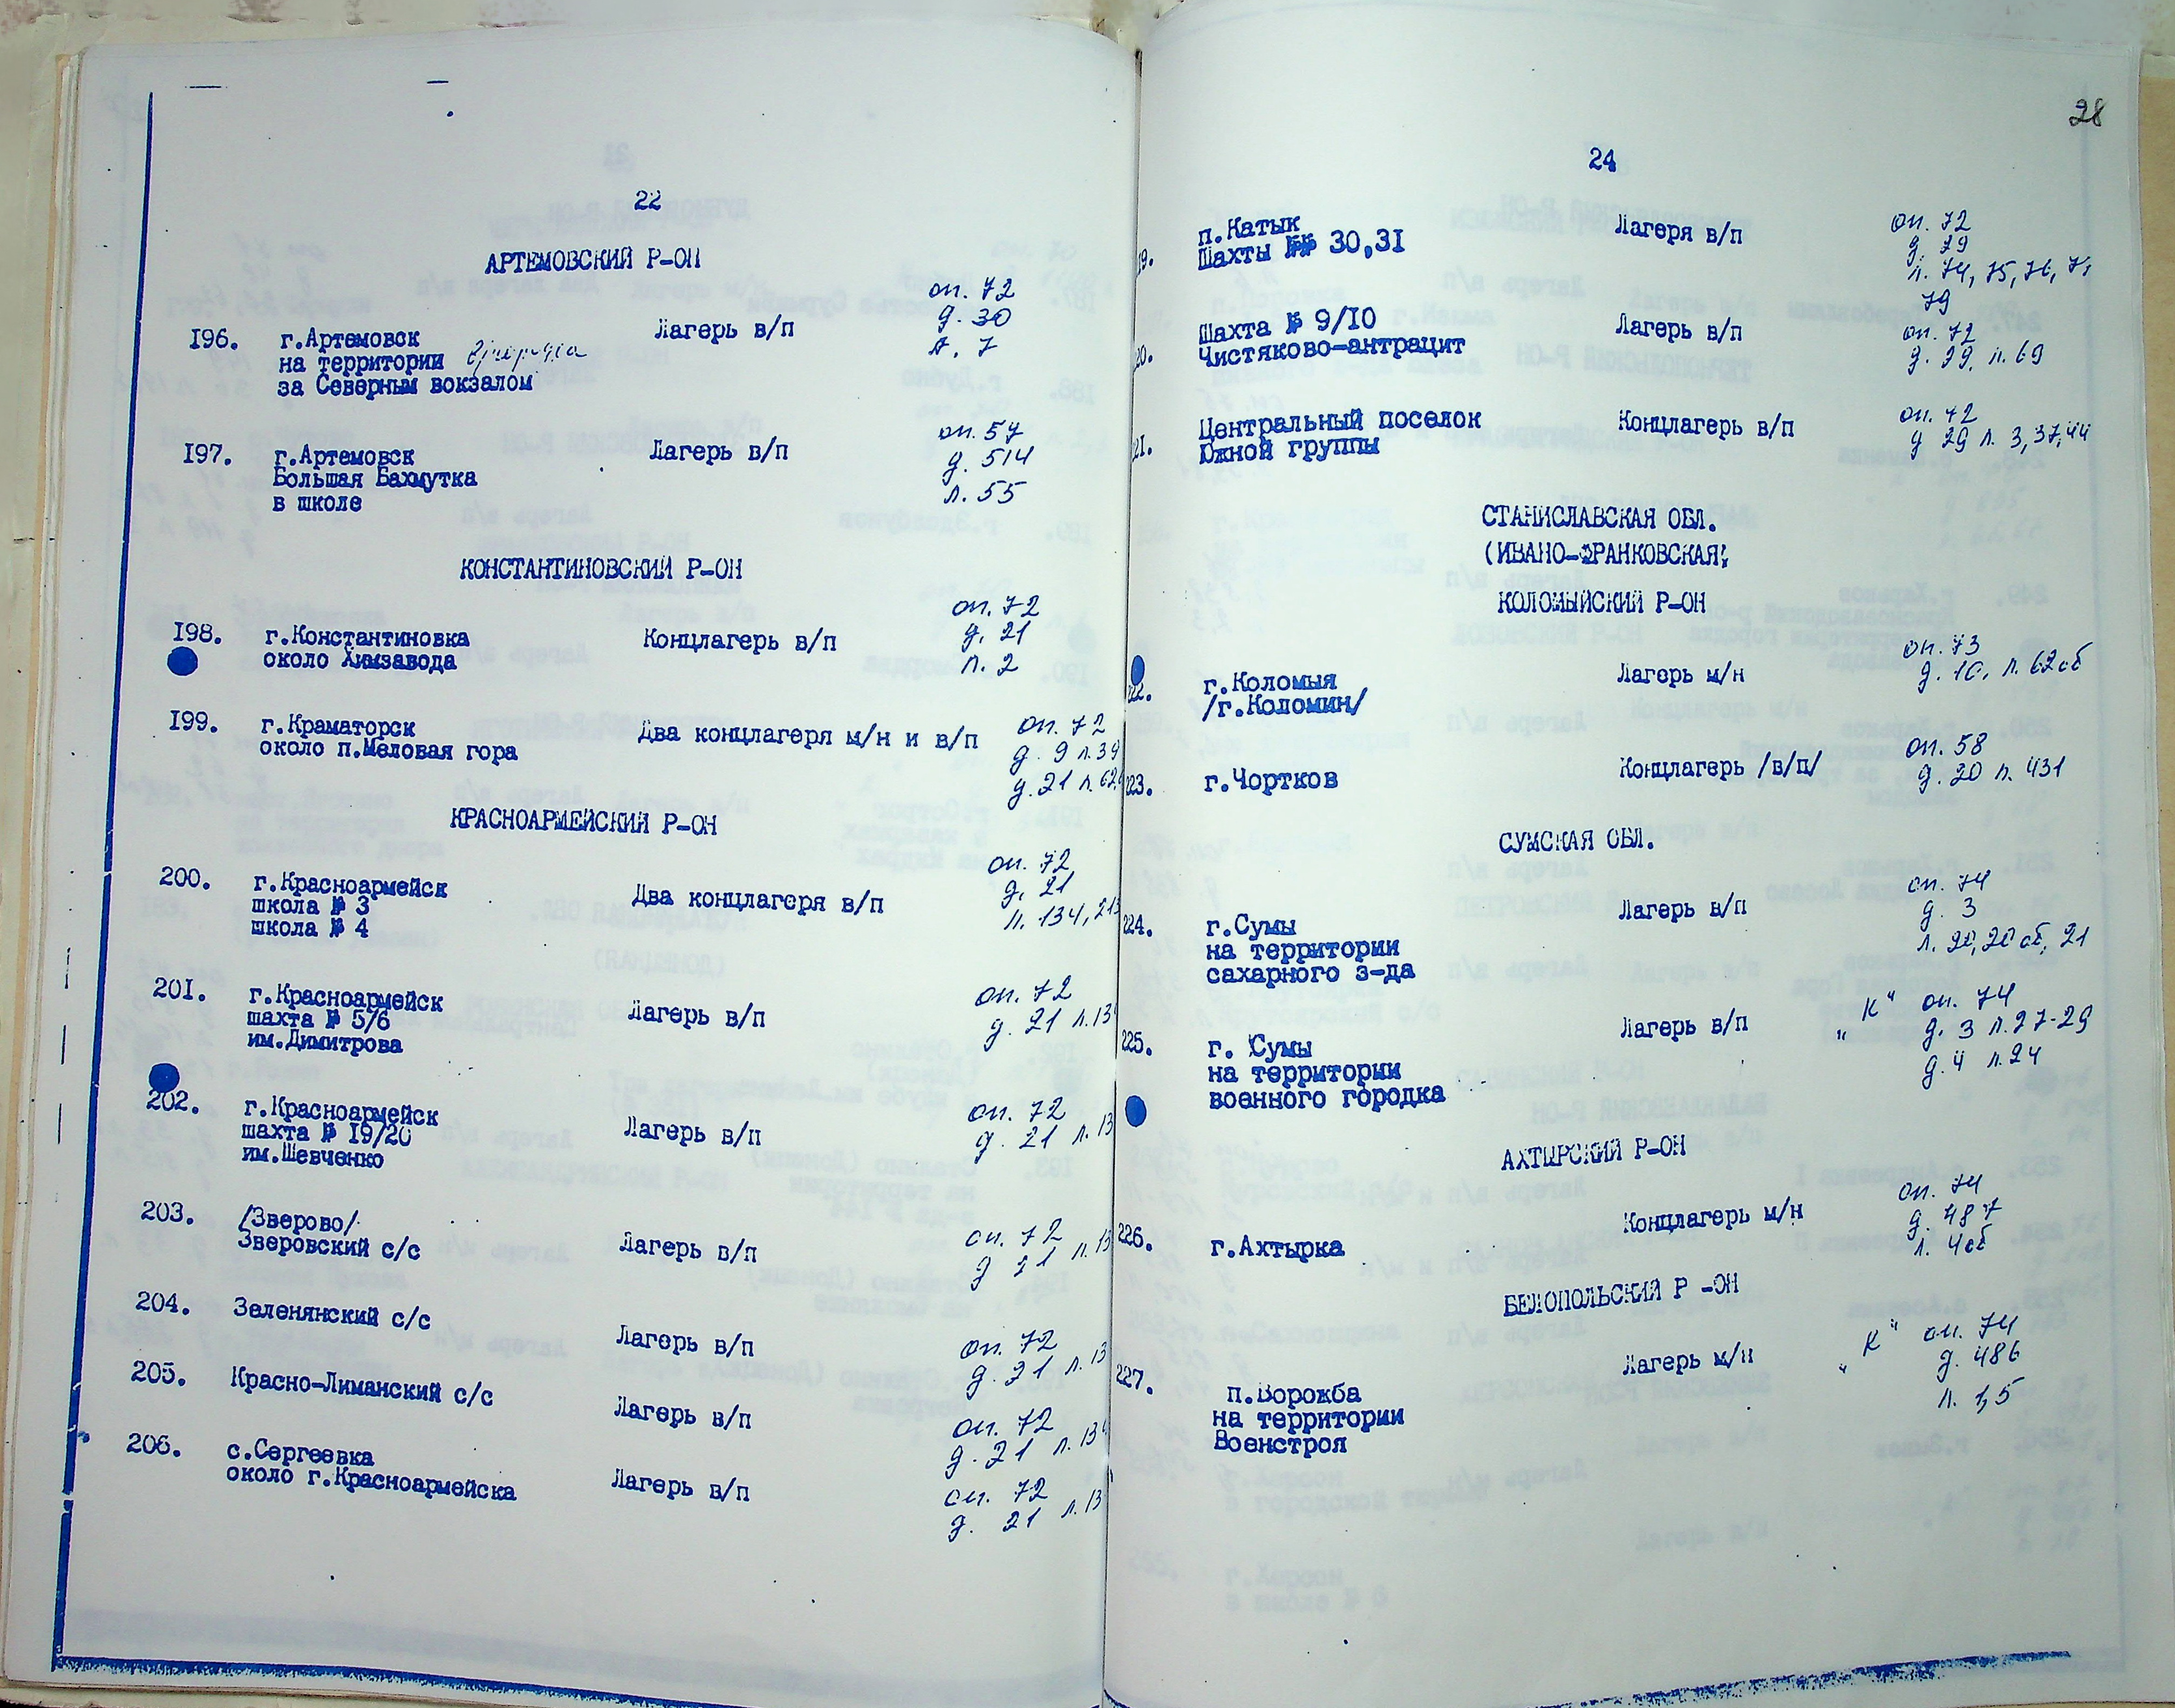 22
АРТЕМОВСКИЙ Р-ОН
196. г.Артемовск Лагерь в/п оп. 72
на территории д. 30
за Северным вокзалом л. 7
197. г.Артемовск Лагерь в/п оп. 57
Большая Бахмутка д. 514
в школе л. 55
КОНСТАНТИНОВСКИЙ Р-ОН
198. г.Константиновка Концлагерь в/п оп. 72
около Химзавода д. 21
л. 2
199. г.Краматорск Два концлагеря м/н и в/п оп. 72
около п.Меловая гора д. 9 л. 39
д. 21 л. 62,
КРАСНОАРМЕЙСКИЙ Р-ОН
200. г.Красноармейск Два концлагеря в/п оп. 72
школа № 3 д. 21
школа № 4 л. 134, 213
201. г.Красноармейск Лагерь в/п оп. 72
шахта № 5/6 д. 21 л. 13
им.Димитрова
202. г.Красноармейск Лагерь в/п оп. 72
шахта № 19/20 д. 21 л. 13
им.Шевченко
203. /Зверово/ Лагерь в/п оп. 72
Зверовский с/с д 21 л. 13
204. Зеленянский с/с Лагерь в/п оп. 72
д. 21 л. 13
205. Красно-Лиманский с/с Лагерь в/п оп. 72
д. 21 л. 134
206. с.Сергеевка Лагерь в/п оп. 72
около г.Красноармейска д. 21 л. 13
28
24
19. п.Катык Лагеря в/п оп. 72
Шахты №№ 30,31 д. 29
л. 74, 75, 76, 77
79
20. Шахта № 9/10 Лагерь в/п оп. 72
Чистяково-антрацит д. 29, л. 69
21. Центральный поселок Концлагерь в/п оп. 72
Южной группы д 29 л. 3, 37, 44
СТАНИСЛАВСКАЯ ОБЛ.
(ИВАНО-ФРАНКОВСКАЯ)
КОЛОМЫЙСКИЙ Р-ОН
222. г.Коломыя Лагерь м/н оп. 73
/г.Коломин/ д. 10, л. 62об
223. г.Чортков Концлагерь /в/п/ оп. 58
д. 20 л. 431
СУМСКАЯ ОБЛ.
224. г.Сумы Лагерь в/п оп. 74
на территории д. 3
сахарного з-да л. 20, 20 об, 21
225. г. Сумы Лагерь в/п „К" оп. 74
на территории д. 3 л. 27-29
военного городка д. 4 л. 24
АХТЫРСКИЙ Р-ОН
226. г.Ахтырка Концлагерь м/н оп. 74
д. 487
л. 4об
БЕЛОПОЛЬСКИЙ Р -ОН
227. п.Ворожба Лагерь м/н „К" оп. 74
на территории д. 486
Военстроя л. 1,5